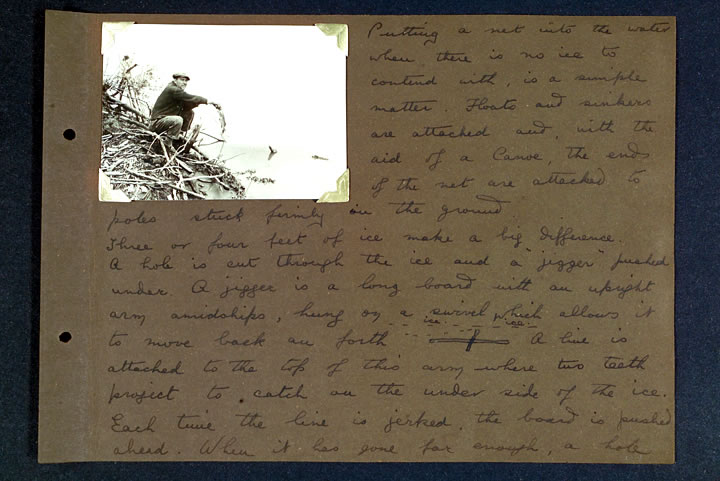 Putting a net into the water
when there is no ice to
contend with, is a simple
matter. Floats and sinkers
are attached and, with the
aid of a Canoe, the ends
of the net are attached to
poles stuck firmly in the ground
Three or four feet of ice make a big difference.
A hole is cut through the ice and a "jigger" pushed
under. A jigger is a long board with an upright
arm amidships, hung on a swivel which allows it
ice ice
to move back an forth A line is
attached to the top of this arm where two teeth
project to catch on the under side of the ice.
Each time the line is jerked, the board is pushed
ahead. When it has gone far enough, a hole